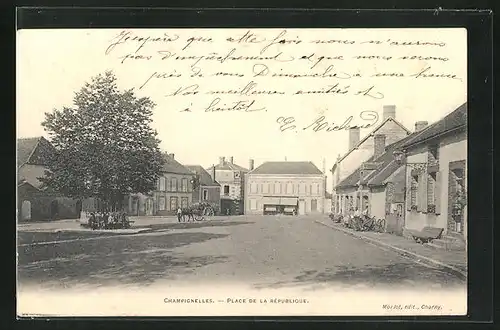 J'espère que cette fois nous n'aurons
pas d'empêchement et que nous serons
près de vous Dimanche à une heure
Nos meilleures amitiés et
à bientôt E. Richard
CHAMPIGNELLES. — PLACE DE LA RÉPUBLIQUE.
édit., Charny.